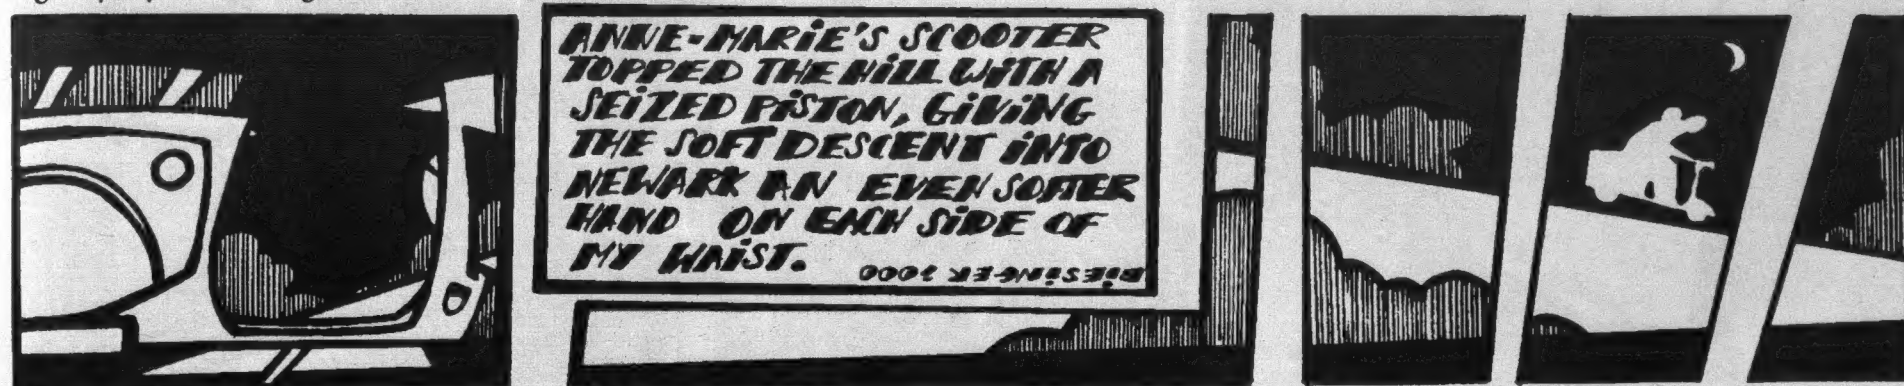 ANNE-MARiE'S SCOOTER
TOPPED THE HiLL WiTH A
SEiZED PiSTON, GiViNG
THE SOFT DESCENT iNTO
NEWARK AN EVEN SOFTER
HAND ON EACH SiDE OF
MY WAiST.
BiESiNGER 2000